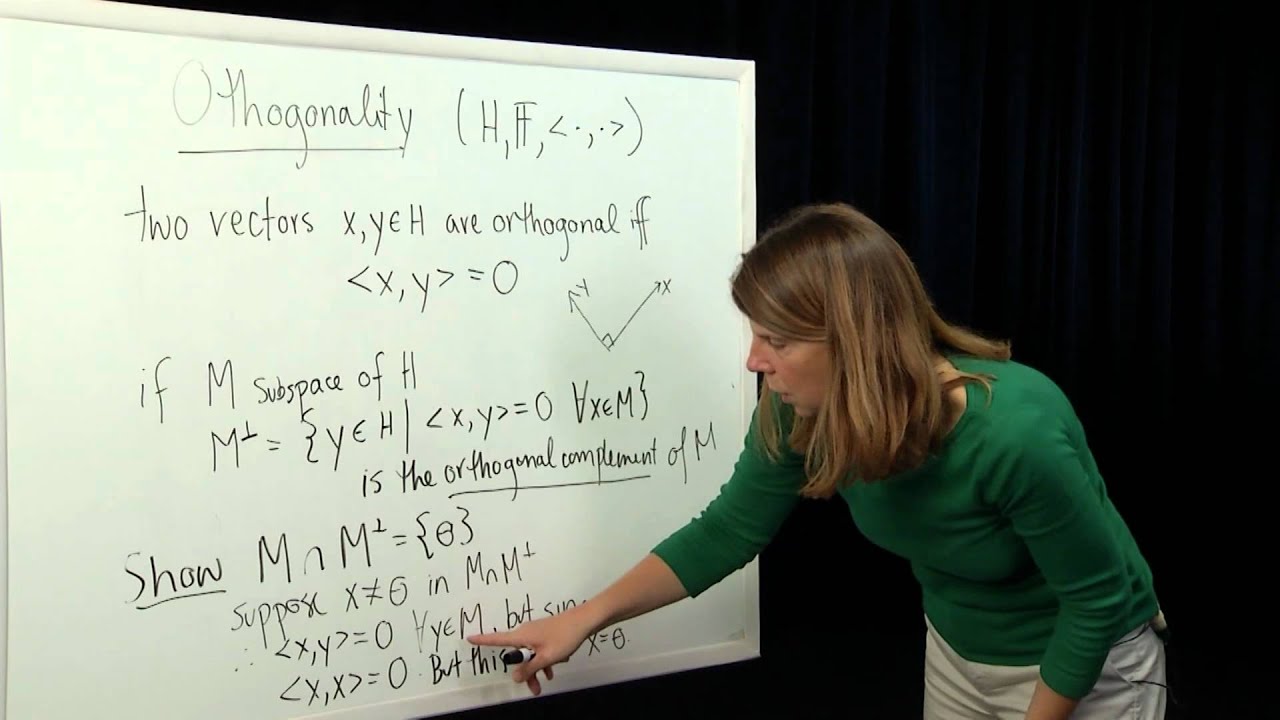 Orthogonality (H, 𝔽, <·,·>)
two vectors x, y ∈ H are orthogonal iff
<x, y> = 0
y
x
if M subspace of H
M⊥ = {y ∈ H | <x, y> = 0 ∀x∈M}
is the orthogonal complement of M
Show M ∩ M⊥ = {θ}
suppose x ≠ θ in M∩M⊥
∴ <x,y> = 0 ∀y∈M, but
<x,x> = 0. But this x=θ.